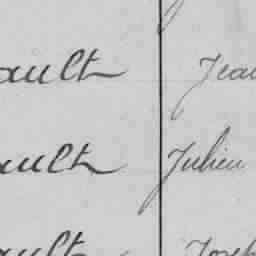 ault Jea
ault Julien
ault Josep